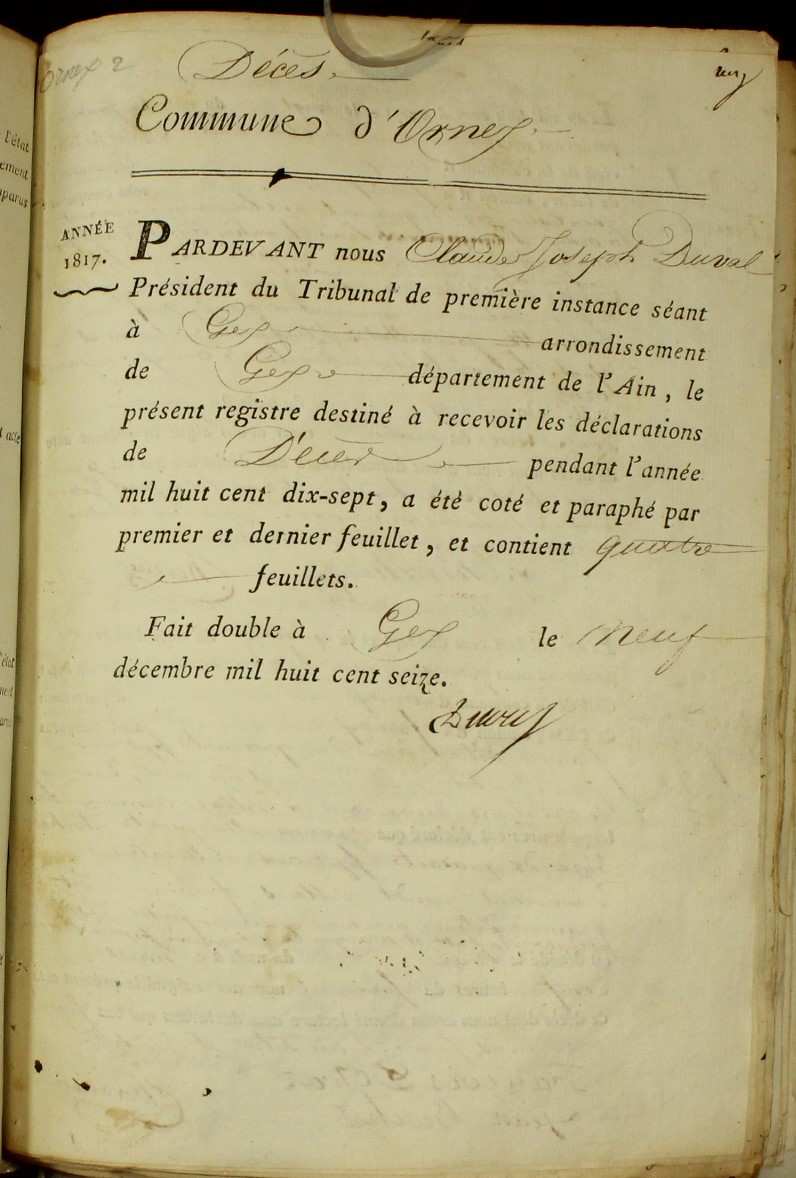 Ornex 2
Décès.
Commune d'Ornex.
ANNÉE
1817.
PARDEVANT nous Claude Joseph Duval
Président du Tribunal de première instance séant
à Gex arrondissement
de Gex département de l'Ain, le
présent registre destiné à recevoir les déclarations
de Décès pendant l'année
mil huit cent dix-sept, a été coté et paraphé par
premier et dernier feuillet, et contient quatre
feuillets.
Fait double à Gex le neuf
décembre mil huit cent seize.
l'état
ement
parus
t acte